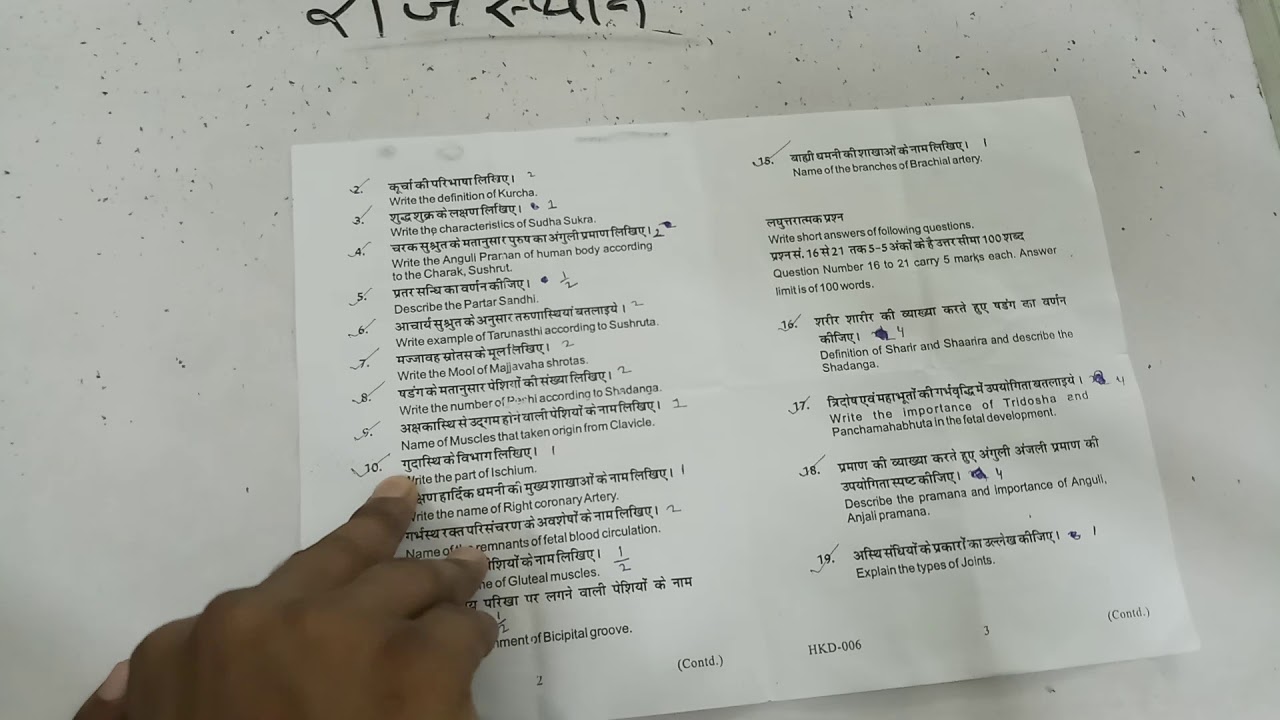 राजस्थान
2. कूर्चा की परिभाषा लिखिए। 2
Write the definition of Kurcha.
3. शुद्ध शुक्र के लक्षण लिखिए। 1
Write the characteristics of Sudha Sukra.
4. चरक सुश्रुत के मतानुसार पुरुष का अंगुली प्रमाण लिखिए। 2
Write the Anguli Praman of human body according
to the Charak, Sushrut.
5. प्रतर सन्धि का वर्णन कीजिए। 1/2
Describe the Partar Sandhi.
6. आचार्य सुश्रुत के अनुसार तरुणास्थियां बतलाइये। 2
Write example of Tarunasthi according to Sushruta.
7. मज्जावह स्रोतस के मूल लिखिए। 2
Write the Mool of Majjavaha shrotas.
8. षडंग के मतानुसार पेशियों की संख्या लिखिए। 2
Write the number of Pechi according to Shadanga.
9. अक्षकास्थि से उद्गम होने वाली पेशियों के नाम लिखिए। 1
Name of Muscles that taken origin from Clavicle.
10. गुदास्थि के विभाग लिखिए। 1
Write the part of Ischium.
हार्दिक धमनी की मुख्य शाखाओं के नाम लिखिए। 1
Write the name of Right coronary Artery.
गर्भस्थ रक्त परिसंचरण के अवशेषों के नाम लिखिए। 2
Name of the remnants of fetal blood circulation.
के नाम लिखिए। 1/2
of Gluteal muscles.
परिखा पर लगने वाली पेशियों के नाम
1/2
of Bicipital groove.
(Contd.)
2
15. बाह्वी धमनी की शाखाओं के नाम लिखिए। 1
Name of the branches of Brachial artery.
लघुत्तरात्मक प्रश्न
Write short answers of following questions.
प्रश्न सं. 16 से 21 तक 5-5 अंकों के है उत्तर सीमा 100 शब्द
Question Number 16 to 21 carry 5 marks each. Answer
limit is of 100 words.
16. शरीर शारीर की व्याख्या करते हुए षडंग का वर्णन
कीजिए। 4
Definition of Sharir and Shaarira and describe the
Shadanga.
17. त्रिदोष एवं महाभूतों की गर्भवृद्धि में उपयोगिता बतलाइये। 4
Write the importance of Tridosha and
Panchamahabhuta in the fetal development.
18. प्रमाण की व्याख्या करते हुए अंगुली अंजली प्रमाण की
उपयोगिता स्पष्ट कीजिए। 4
Describe the pramana and importance of Anguli,
Anjali pramana.
19. अस्थि संधियों के प्रकारों का उल्लेख कीजिए। 1
Explain the types of Joints.
(Contd.)
3
HKD-006